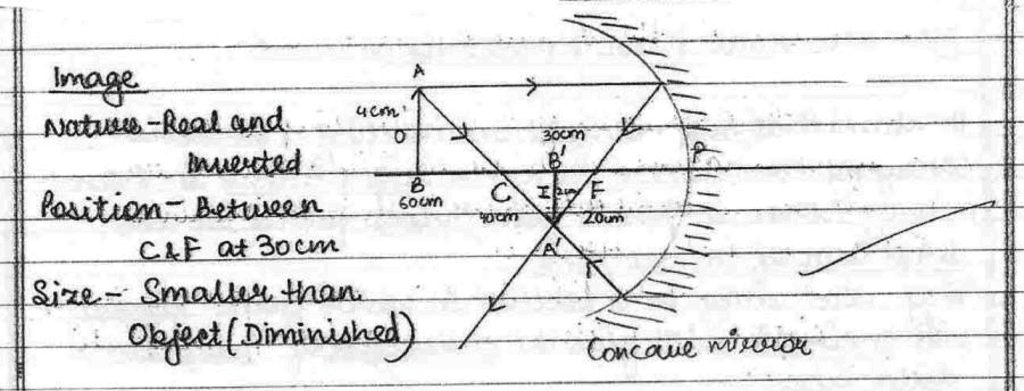 Image
Nature - Real and
Inverted
Position - Between
C & F at 30cm
Size - Smaller than
Object (Diminished)
A
4cm
O
B
60cm
C
40cm
30cm
B'
I 2cm
F
20cm
A'
P
Concave mirror